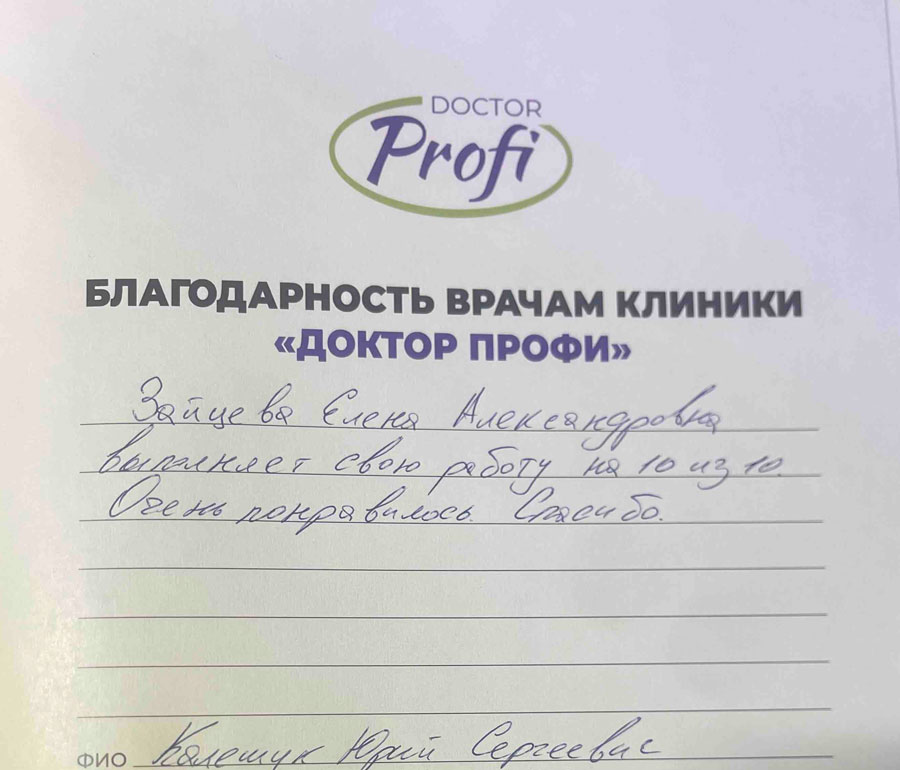 DOCTOR
Profi
БЛАГОДАРНОСТЬ ВРАЧАМ КЛИНИКИ
«ДОКТОР ПРОФИ»
Зайцева Елена Александровна
выполняет свою работу на 10 из 10.
Очень понравилось. Спасибо.
ФИО Калешук Юрий Сергеевич